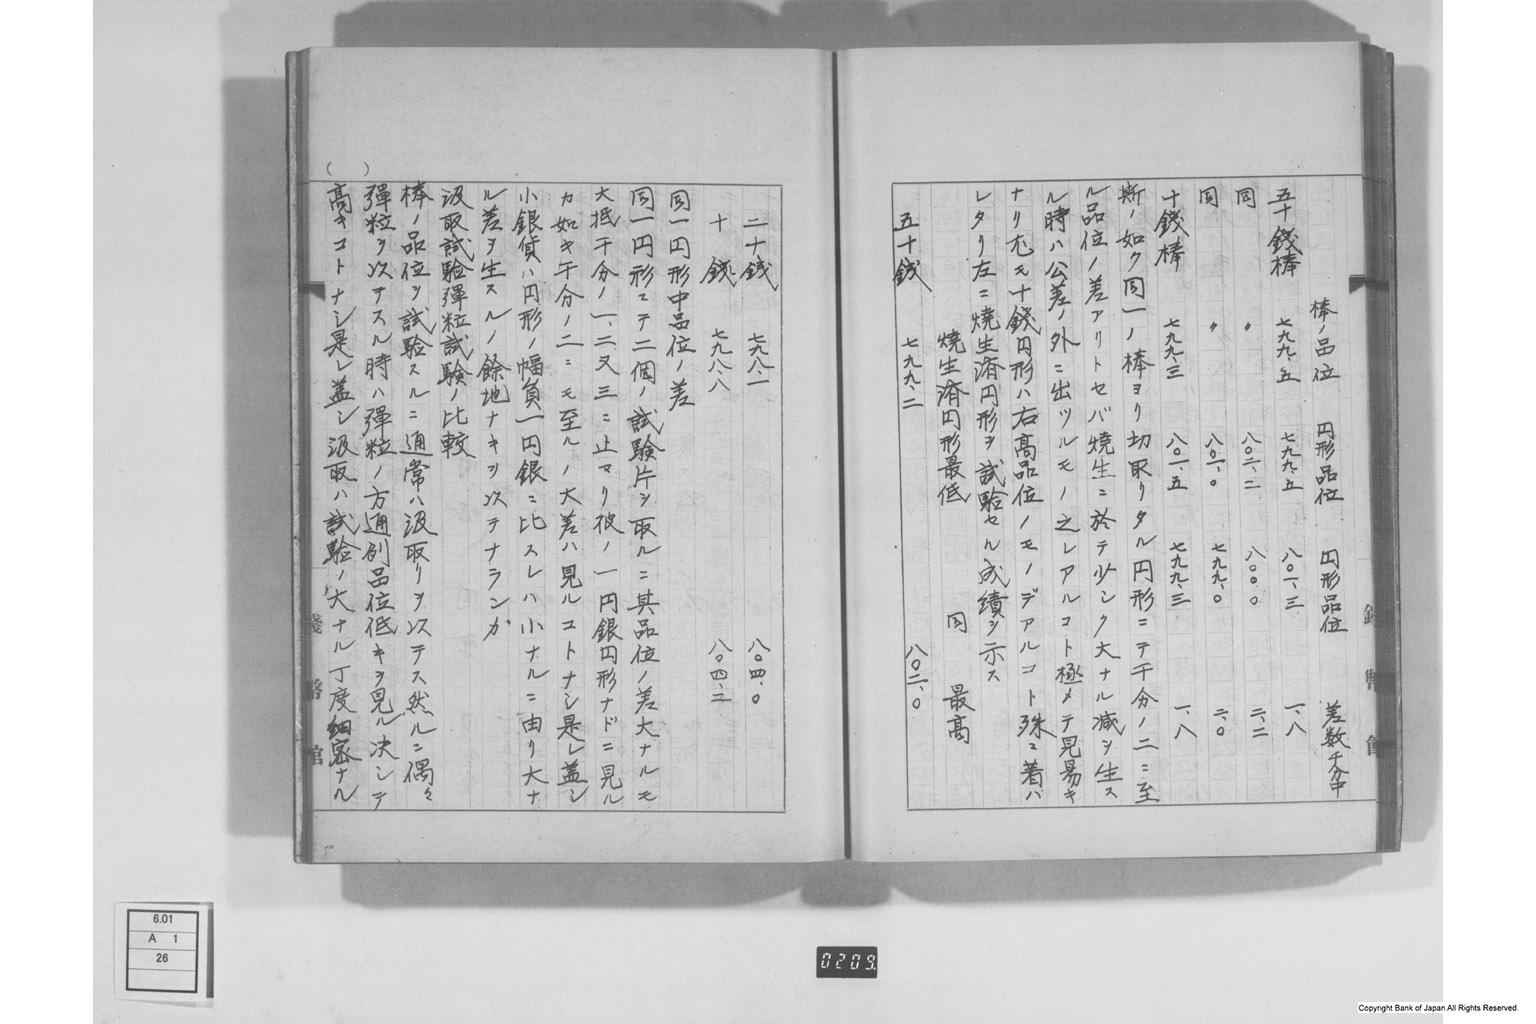 棒ノ品位 円形品位 円形品位 差数千分中
五十銭棒 七九九、五 七九九、五 八〇一、三 一、八
同 〃 八〇二、二 八〇〇、〇 二、二
同 〃 八〇一、〇 七九九、〇 二、〇
十銭棒 七九九、三 八〇一、五 七九九、三 一、八
斯ノ如ク同一ノ棒ヨリ切取リタル円形ニテ千分ノ二ニ至
ル品位ノ差アリトセバ焼生ニ於テ少シク大ナル減シ生ス
ル時ハ公差ノ外ニ出ツルモノ之レアルコト極メテ見易キ
ナリ尤モ十銭円形ハ右高品位ノモノデアルコト殊ニ著ハ
レタリ左ニ焼生済円形ヲ試験セル成績ヲ示ス
焼生済円形最低 同 最高
五十銭 七九九、二 八〇二、〇
二十銭 七九八、一 八〇四、〇
十銭 七九八、八 八〇四、二
同一円形中品位ノ差
同一円形ニテ二個ノ試験片ヲ取ルニ其品位ノ差大ナルモ
大抵千分ノ一、二又三ニ止マリ彼ノ一円銀円形ナドニ見ル
カ如キ千分ノ二ニモ至ルノ大差ハ見ルコトナシ是レ蓋シ
小銀貨ハ円形ノ幅員一円銀ニ比スレハ小ナルニ由リ大ナ
ル差ヲ生スルノ餘地ナキヲ以テナランカ
汲取試験弾粒試験ノ比較
棒ノ品位ヲ試験スルニ通常ハ汲取リヲ以テス然ルニ偶々
弾粒ヲ以テスル時ハ弾粒ノ方通例品位低キヲ見ル決シテ
高キコトナシ是レ蓋シ汲取ハ試験ノ大ナル丁度細密ナル
6.01
A 1
26
0209
Copyright Bank of Japan All Rights Reserved.